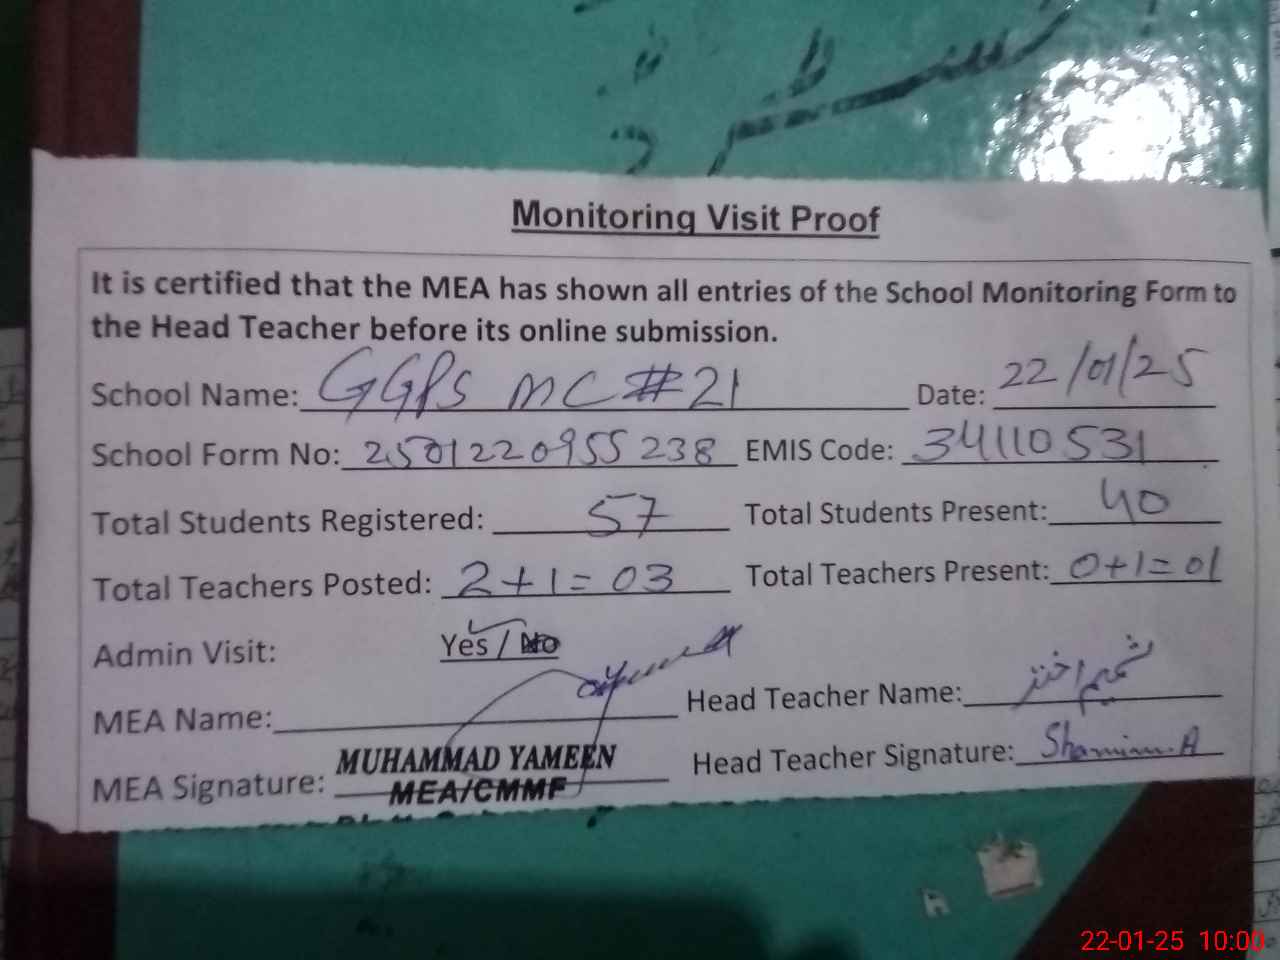 Monitoring Visit Proof
It is certified that the MEA has shown all entries of the School Monitoring Form to
the Head Teacher before its online submission.
School Name: GGPS MC #21 Date: 22/01/25
School Form No: 2501220955238 EMIS Code: 34110531
Total Students Registered: 57 Total Students Present: 40
Total Teachers Posted: 2+1=03 Total Teachers Present: 0+1=01
Admin Visit: Yes / No
MEA Name: Head Teacher Name: شمیم اختر
MEA Signature: MUHAMMAD YAMEEN Head Teacher Signature: Shamim.A
MEA/CMMF
22-01-25 10:00